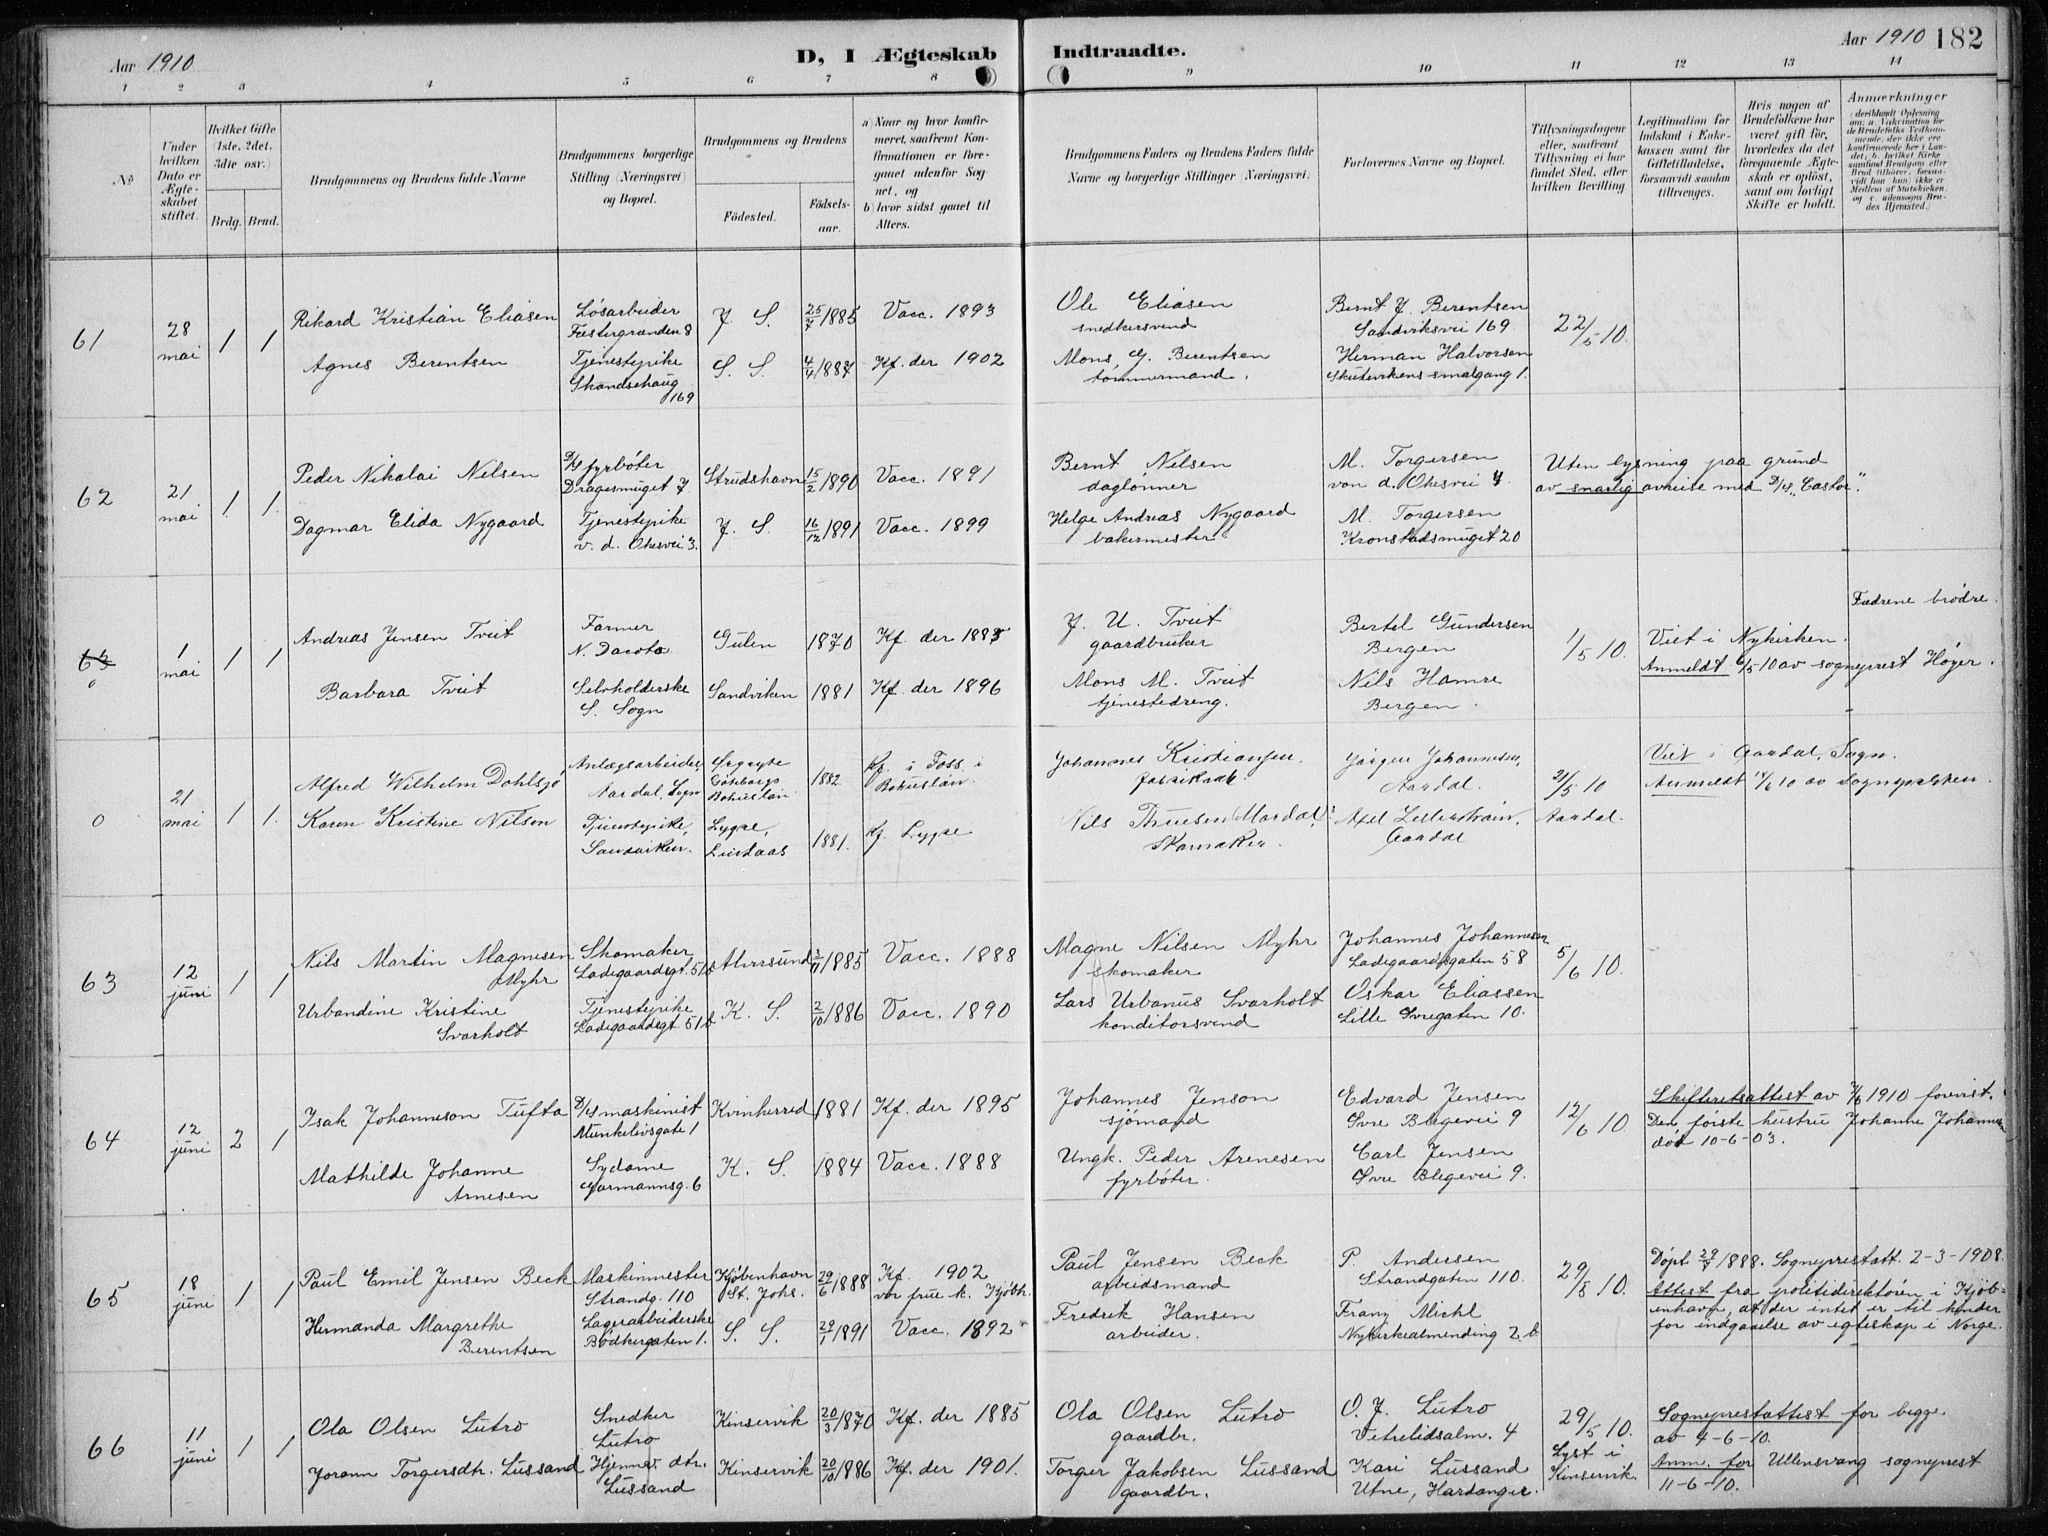 Aar 1910
D, I Ægteskab Indtraadte.
Aar 1910 182
1 2 3 4 5 6 7 8 9 10 11 12 13 14
No
Under hvilken Dato er Ægteskabet stiftet.
Hvilket Gifte (1ste, 2det. 3die osv.)
Brdg. Brud.
Brudgommens og Brudens fulde Navne
Brudgommens borgerlige Stilling (Næringsvei) og Bopæl.
Brudgommens og Brudens
Födested.
Födselsaar.
a) Naar og hvor konfirmeret, saafremt Konfirmationen er foregaaet udenfor Sognet, og
b) hvor sidst gaaet til Alters.
Brudgommens Faders og Brudens Faders fulde Navne og borgerlige Stillinger (Næringsvei.
Forlovernes Navne og Bopæl.
Tillysningsdagene eller, saafremt Tillysning ei har fundet Sted, efter hvilken Bevilling
Legitimation for Indskud i Enkekassen samt for Giftetilladelse, forsaavidt saadan tiltrænges.
Hvis nogen af Brudefolkene har været gift för, hvorledes da det foregaaende Ægteskab er oplöst, samt om lovligt Skifte er holdt.
Anmærkninger
(deriblandt Oplysning om: a. Vakcination for de Brudefolks Vedkommende, der ikke ere konfirmerede her i Landet; b. hvilket Kirkesamfund Brudgom eller Brud tilhører, forsaavidt han (hun) ikke er Medlem af Statskirken, og c. udensogns Brudes Hjemsted.)
61
28 mai
1 1
Rikard Kristian Eliasen
Løsarbeider
Festergranden 8
J S.
25/7 1885
Vacc. 1893
Ole Eliasen
snedkersvend
Bernt J. Berentsen
Sandviksvei 169
22/5 10.
Agnes Berentsen
Tjenestepike
Skandsehaug 169
S. S.
4/4 1887
Kf. der 1902
Mons G. Berentsen
tømmermand.
Herman Halvorsen
Skutevikens smalgang 1.
62
21 mai
1 1.
Peder Nikolai Nilsen
D/S fyrbøter
Dragesmuget 7.
Strudshavn
15/2 1890
Vacc. 1891
Bernt Nilsen
daglønner
M. Torgersen
von d. Ohesvei 4
Uten lysning paa grund
av snarlig avreise med D/S "Castor".
Dagmar Elida Nygaard
Tjenestepike
v. d. Ohesvei 3.
J. S.
16/12 1891
Vacc. 1899
Helge Andreas Nygaard
bakermester.
M. Torgersen
Kronstadsmuget 20
63
0
1 mai
1 1
Andreas Jensen Tveit
Farmer
N. Dacota
Gulen
1870
Kf. der 1885
J. U. Tveit
gaardbruker
Bertel Gundersen
Bergen
1/5 10.
Fædrene brødre.
Viet i Nykirken.
Anmeldt 6/5 10 av sogneprest Høyer.
Barbara Tveit
Selvholderske
S. Sogn
Sandviken
1881
Kf. der 1896
Mons M. Tveit
tjenestedreng.
Nils Hamre
Bergen.
0
21 mai
1 1.
Alfred Wilhelm Dahlsjö
Anlægsarbeider,
Aardal, Sogn
Göteborgs
Bohuslän
1882
Kf. i Foss i
Bohuslän.
Johannes Kristiansen
Jørgen Johannesen,
Aardal.
21/5 10
Aardal.
Viet i Aardal, Sogn.
Anmeldt 1/6 10 av Sognepresten.
Karen Kristine Nilsen
Tjenestepike,
Sandviken.
Lygre,
Lindaas
1881.
Kf. Lygre
Nils Mardal,
Skomaker.
Axel
Aardal
63
12 juni
1 1
Nils Martin Magnesen
Myhr
Skomaker
Ladegaardsgt. 51b
Aalesund
1885
Vacc. 1888
Magne Nilsen Myhr
skomaker
Johannes Johannesen
Ladegaardsgaten 58
5/6 10.
Urbandine Kristine
Svarholt
Tjenestepike
Ladegaardsgt. 51b
K. S.
2/10 1886
Vacc. 1890
Lars Urbanus Svarholt
konditorsvend
Oskar Eliassen
Lille Øvregaten 10.
64
12 juni
2 1
Isak Johanneson Tufta
D/S maskinist
Munkelivsgate 1
Kvinherred
1881
Kf. der 1895
Johannes Jenson
sjömand
Edvard Jensen
Øvre Blegevei 9
12/6 10.
Skifteretsattest av 7/6 1910 forevist.
Den første hustru Johanne Johannes
død 10-6-03.
Mathilde Johanne
Arnesen
Sydame
Gørmannsg. 6
K. S.
1884
Vacc. 1888
Ungk. Peder Arnesen
fyrbøter.
Carl Jensen
Øvre Blegevei 9.
65
18 juni
1 1
Paul Emil Jensen Beck
Maskinmester
Strandg. 110
Kjøbenhavn
St. Johs.
29/6 1888
Kf. 1902
vor frue k. Kjøbh.
Paul Jensen Beck
arbeidsmand
P. Andersen
Strandgaten 110.
29/5 10.
Døpt 29/7 1888. Sogneprestatt. 2-3-1908.
Attest fra politidirektøren i Kjøb-
enhavn, at der intet er til hinder
for indgaaelse av egteskap i Norge.
Hermanda Margrethe
Berentsen
Lagerarbeiderske
Bødkergaten 1.
S. S.
29/1 1891
Vacc. 1892
Fredrik Hansen
arbeider.
Franz Michl
Nykirkealmending 2 b
66
11 juni
1 1
Ola Olsen Lutro
Snedker
Lutro
Kinservik
20/3 1870
Kf. der 1885
Ola Olsen Lutro
gaardbr.
O. J. Lutro
Vetrlidsalm. 4
29/5 10.
Lyst i
Kinservik.
Sogneprestattest for begge
av 4-6-10.
Anm. for Ullensvang sogneprest
11-6-10.
Jorann Torgersdtr. Lussand
Hjemmev. dtr.
Lussand
Kinservik
20/10 1886
Kf. der 1901.
Torger Jakobsen Lussand
gaardbr.
Kari Lussand
Utne, Hardanger.